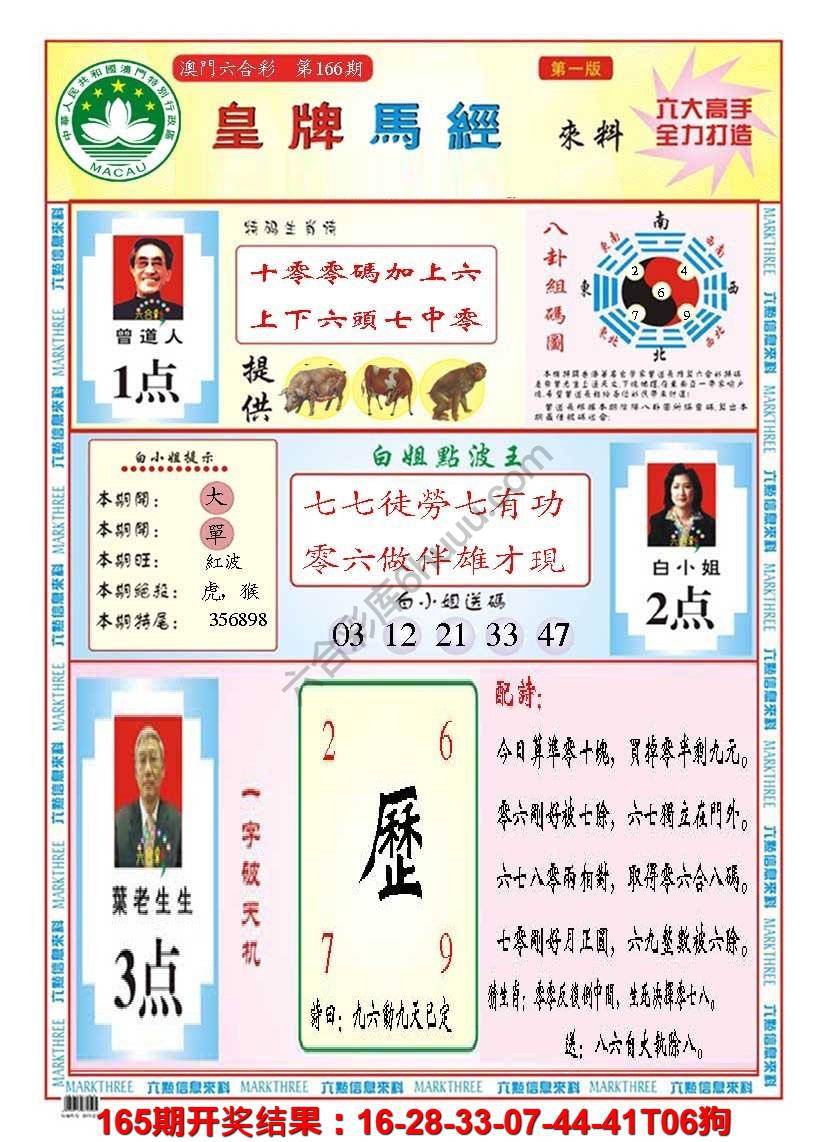 澳門六合彩 第166期
第一版
中華人民共和國澳門特別行政區
MACAU
皇牌馬經
來料
六大高手
全力打造
曾道人
1点
特码生肖诗
十零零碼加上六
上下六頭七中零
提供
八卦組碼圖
南
東南
西南
2
4
東
6
西
7
9
東北
西北
北
白小姐提示
本期開： 大
本期開： 單
本期旺： 紅波
本期絕殺： 虎，猴
本期特尾： 356898
白姐點波王
七七徒勞七有功
零六做伴雄才現
白小姐送碼
03 12 21 33 47
白小姐
2点
葉老生生
3点
一字破天机
2 6
歷
7 9
詩曰：九六動九天已定
配詩：
今日算準零十塊，買掉零半剩九元。
零六剛好被七除，六七獨立在門外。
六七八零兩相對，取得零六合八碼。
七零剛好月正圓，六九整數被六除。
猜生肖：零零反復倒中間，生死決擇零七八。
送：八六自大執除八。
六點信息來料 MARKTHREE
六合彩库6huuu.com
165期开奖结果：16-28-33-07-44-41T06狗